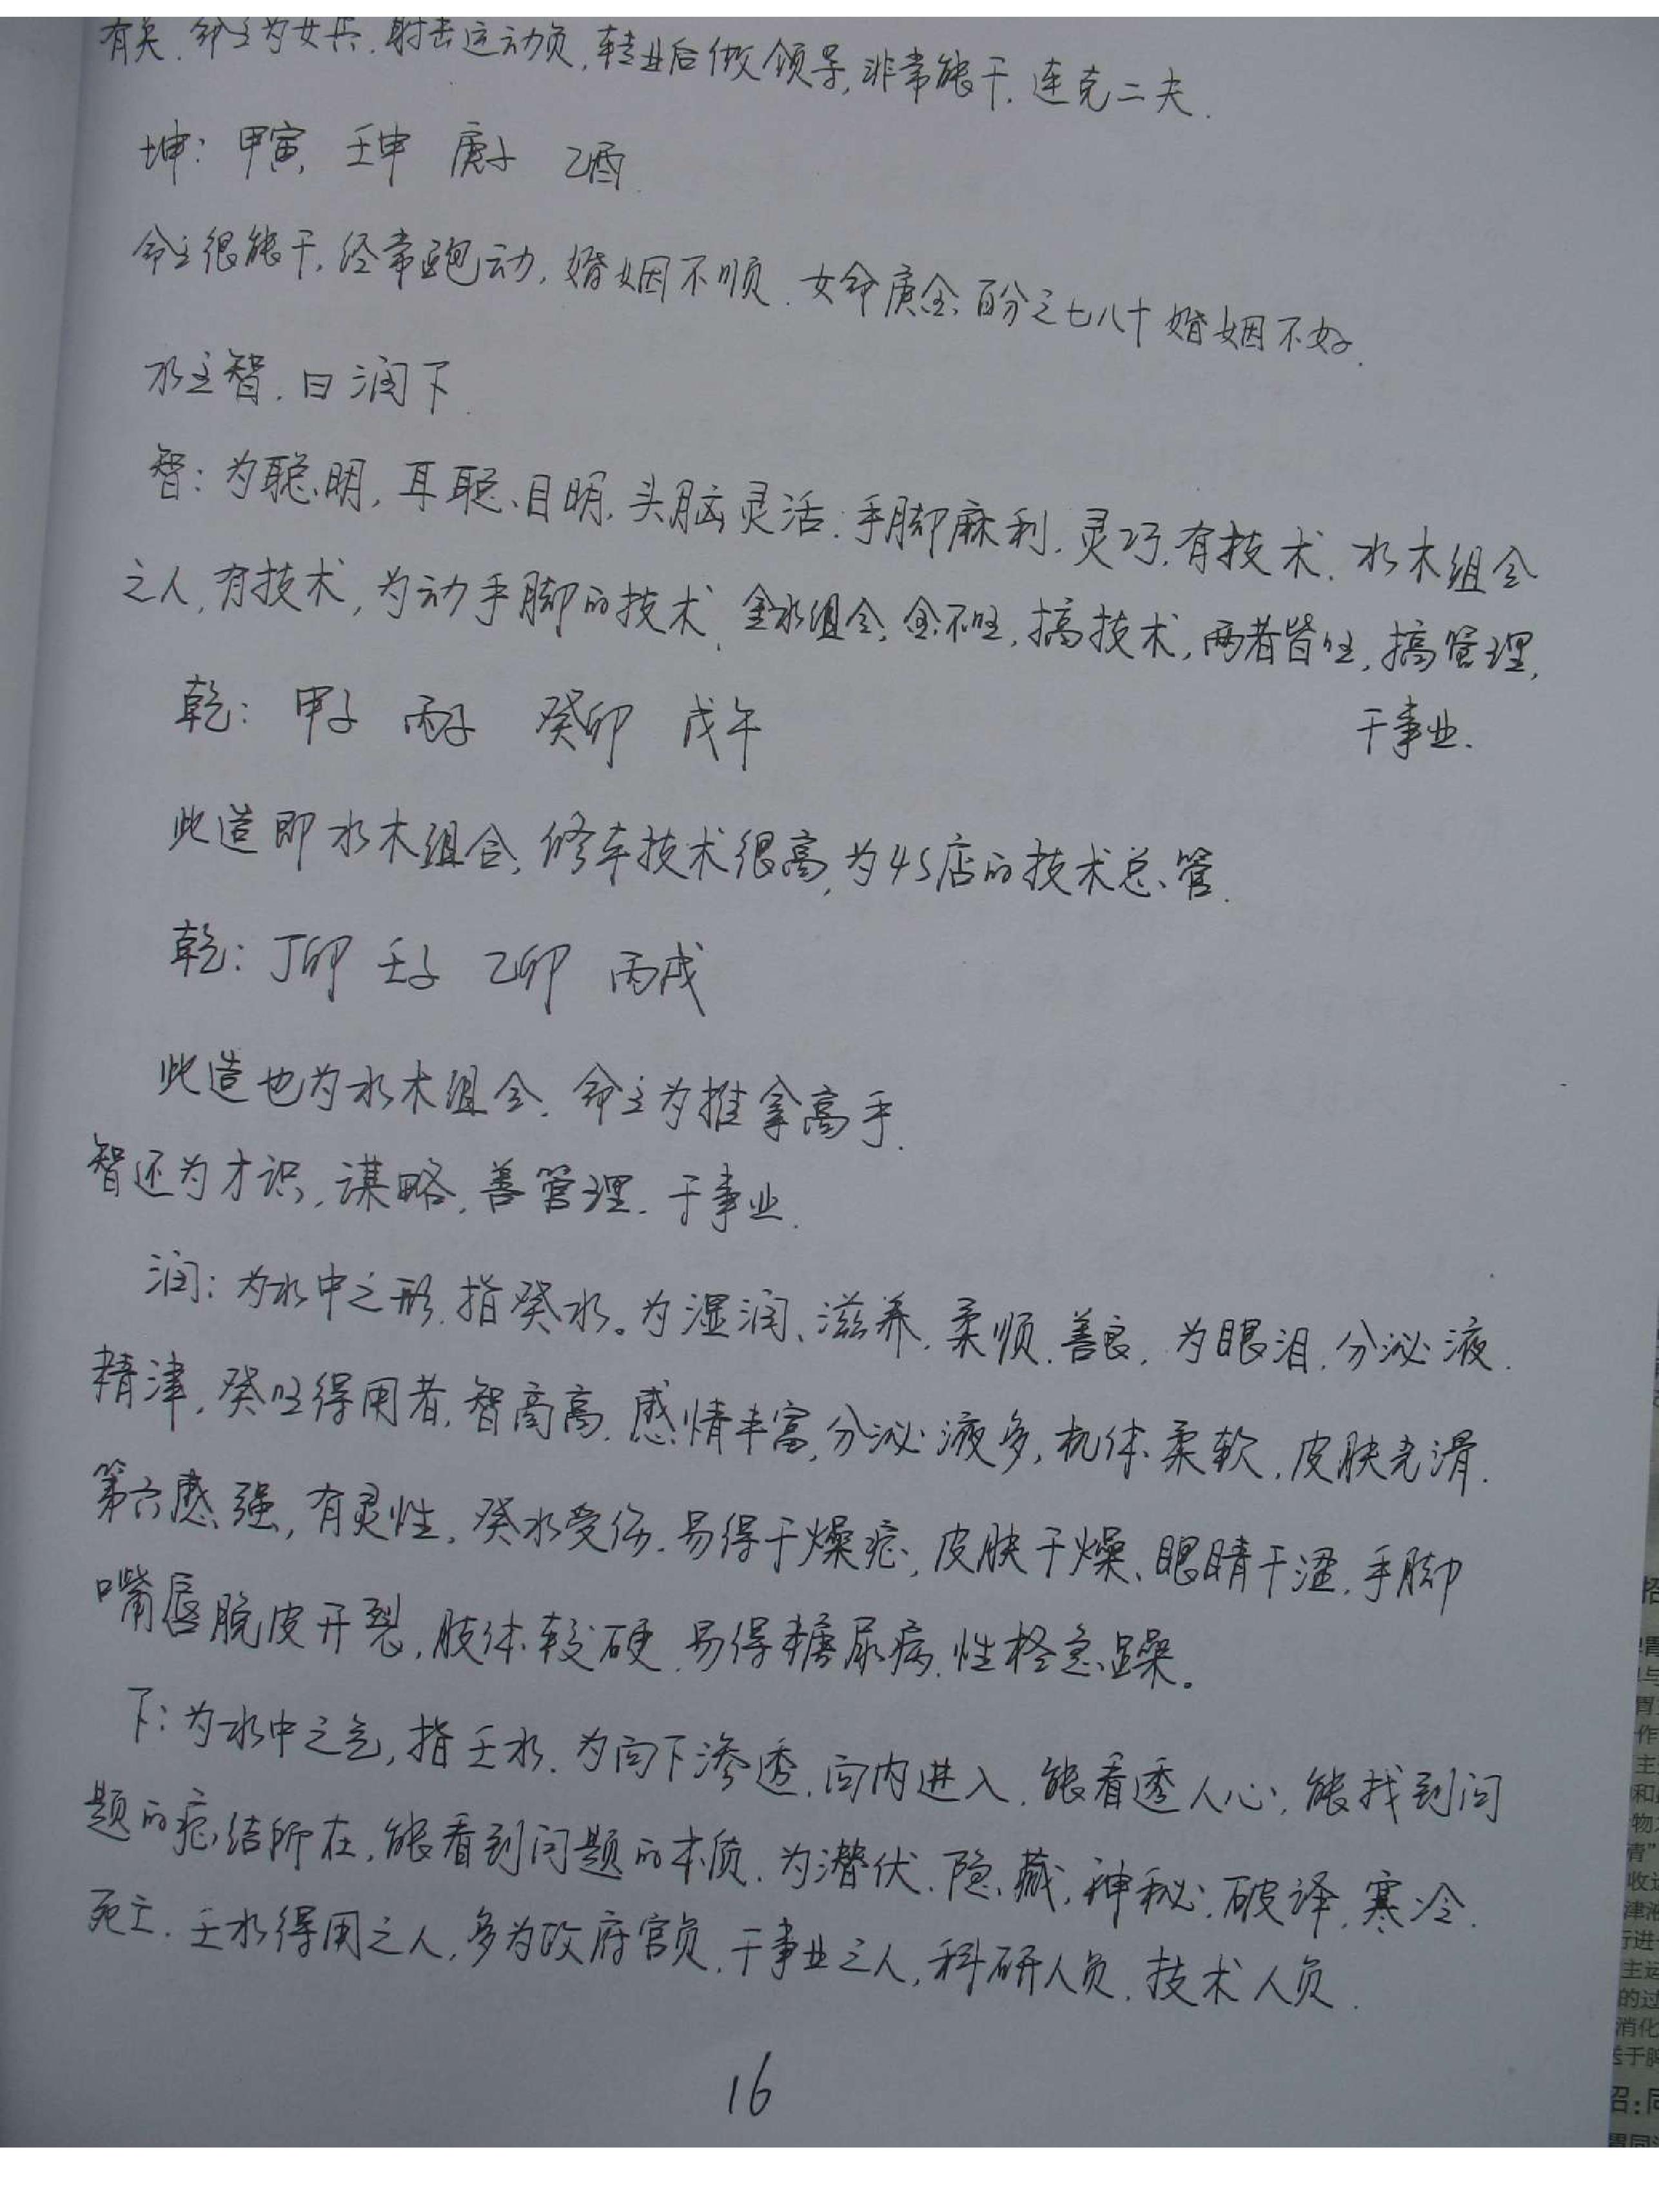 有关.命主为女兵.射击运动员,转业后做领导,非常能干.连克二夫.
坤:甲寅.壬申 庚子 乙酉.
命主很能干.经常跑动,婚姻不顺.女命庚金.百分之七八十婚姻不好.
水主智.曰润下.
智:为聪明,耳聪、目明.头脑灵活.手脚麻利.灵巧.有技术.水木组合
之人,有技术,为动手脚的技术.金水组合,金不旺,搞技术,两者皆旺,搞管理,
干事业.
乾:甲子 丙子 癸卯 戊午
此造即水木组合,修车技术很高,为4S店的技术总管.
乾:丁卯 壬子 乙卯 丙戌
此造也为水木组合.命主为推拿高手.
智还为才识,谋略,善管理.干事业.
润:为水中之形.指癸水。为湿润、滋养.柔顺.善良.为眼泪.分泌液.
精津.癸旺得用者,智商高.感情丰富,分泌液多,机体柔软,皮肤光滑.
第六感强,有灵性.癸水受伤.易得干燥症,皮肤干燥、眼睛干涩.手脚
嘴唇脱皮开裂,肢体较硬.易得糖尿病.性格急躁。
下:为水中之气,指壬水.为向下渗透.向内进入.能看透人心,能找到问
题的症结所在,能看到问题的本质.为潜伏.隐藏,神秘.破译.寒冷.
死亡.壬水得用之人,多为政府官员,干事业之人,科研人员.技术人员.
16